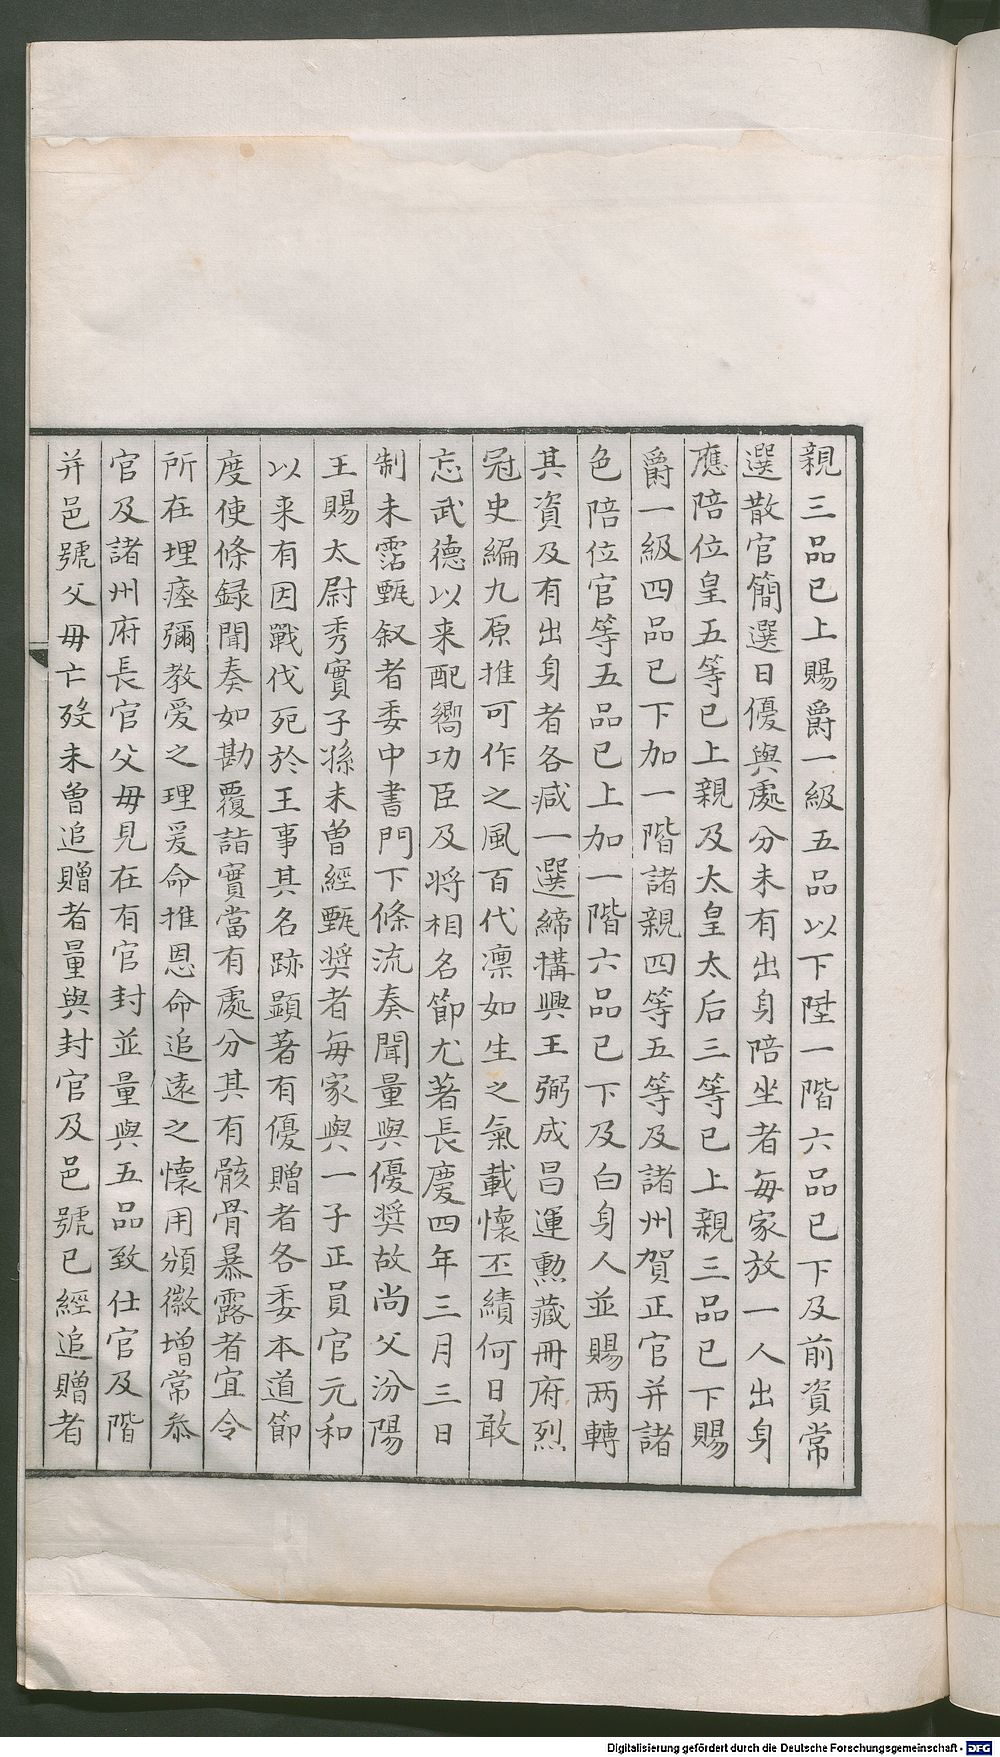 親三品已上賜爵一級五品以下陞一階六品已下及前資常
選散官簡選日優與處分未有出身陪坐者每家放一人出身
應陪位皇五等已上親及太皇太后三等已上親三品已下賜
爵一級四品已下加一階諸親四等五等及諸州賀正官并諸
色陪位官等五品已上加一階六品已下及白身人並賜两轉
其資及有出身者各減一選締搆興王弼成昌運勲藏冊府烈
冠史編九原推可作之風百代凛如生之氣載懷丕績何日敢
忘武德以来配嚮功臣及将相名節尤著長慶四年三月三日
制未霑甄叙者委中書門下條流奏聞量與優奨故尚父汾陽
王賜太尉秀實子孫未曽經甄奨者每家與一子正員官元和
以来有因戰伐死於王事其名跡顯著有優贈者各委本道節
度使條録聞奏如勘覆詣實當有處分其有骸骨暴露者宜令
所在埋瘞彌教爱之理爰命推恩命追遠之懷用頒徽增常叅
官及諸州府長官父毋見在有官封並量與五品致仕官及階
并邑號父毋亡殁未曽追贈者量與封官及邑號已經追贈者
Digitalisierung gefördert durch die Deutsche Forschungsgemeinschaft - DFG